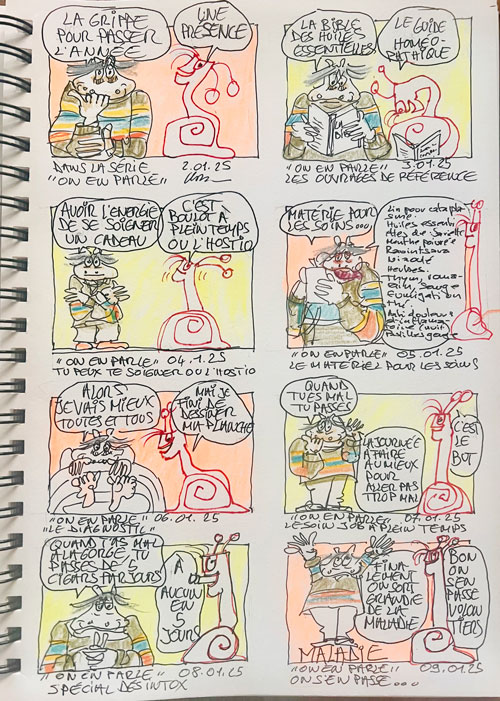 LA GRIPPE
POUR PASSER
L'ANNÉE
UNE
PRÉSENCE
DANS LA SÉRIE 2.01.25
"ON EN PARLE"
LA BIBLE
DES HUILES
ESSENTIELLES
LE GUIDE
HOMÉO
PATHIQUE
LA
BIBLE
"ON EN PARLE" 3.01.25
LES OUVRAGES DE RÉFÉRENCE
AVOIR L'ENERGIE
DE SE SOIGNER
UN CADEAU
C'EST
BOULOT A
PLEIN TEMPS
OU L'HOSTO
"ON EN PARLE" 04.1.25
TU PEUX TE SOIGNER OU L'HOSTO
MATERIEL POUR
LES SOINS...
Lin pour cata pla
sme.
Huiles essenti
elles de Sariette
Menthe poivrée
Ravintsara
Niaouli
Herbes.
Thym, roma-
rin, Sauge
Eucaliptus
thé
Anti douleurs
Pastilles gorge
"ON EN PARLE" 05.01.25
LE MATERIEL POUR LES SOINS
ALORS
JE VAIS MIEUX
TOUTES ET TOUS
MAI JE
FINI DE
DESSINER
MA PLANCHE
"ON EN PARLE" 06.01.25
"LE DIAGNOSTIC"
QUAND
TU ES MAL
TU PASSES
LA JOURNÉE
A FAIRE
AU MIEUX
POUR
ALLER PAS
TROP MAL
C'EST
LE
BUT
"ON EN PARLE" 07.01.25
LE SOIN JOB A PLEIN TEMPS
QUAND T'AS MAL
A LA GORGE, TU
PASSES DE 5
CIGARS PAR JOURS
À
AUCUN
EN
5
JOURS
"ON EN PARLE" 08.01.25
SPÉCIAL DÉSINTOX
FINA-
LEMENT
ON SORT
GRANDIE
DE LA
MALADIE
BON
ON
S'EN
PASSE
VOLON
TIERS
MALADIE
"ON EN PARLE" 09.01.25
ON S'EN PASSE....